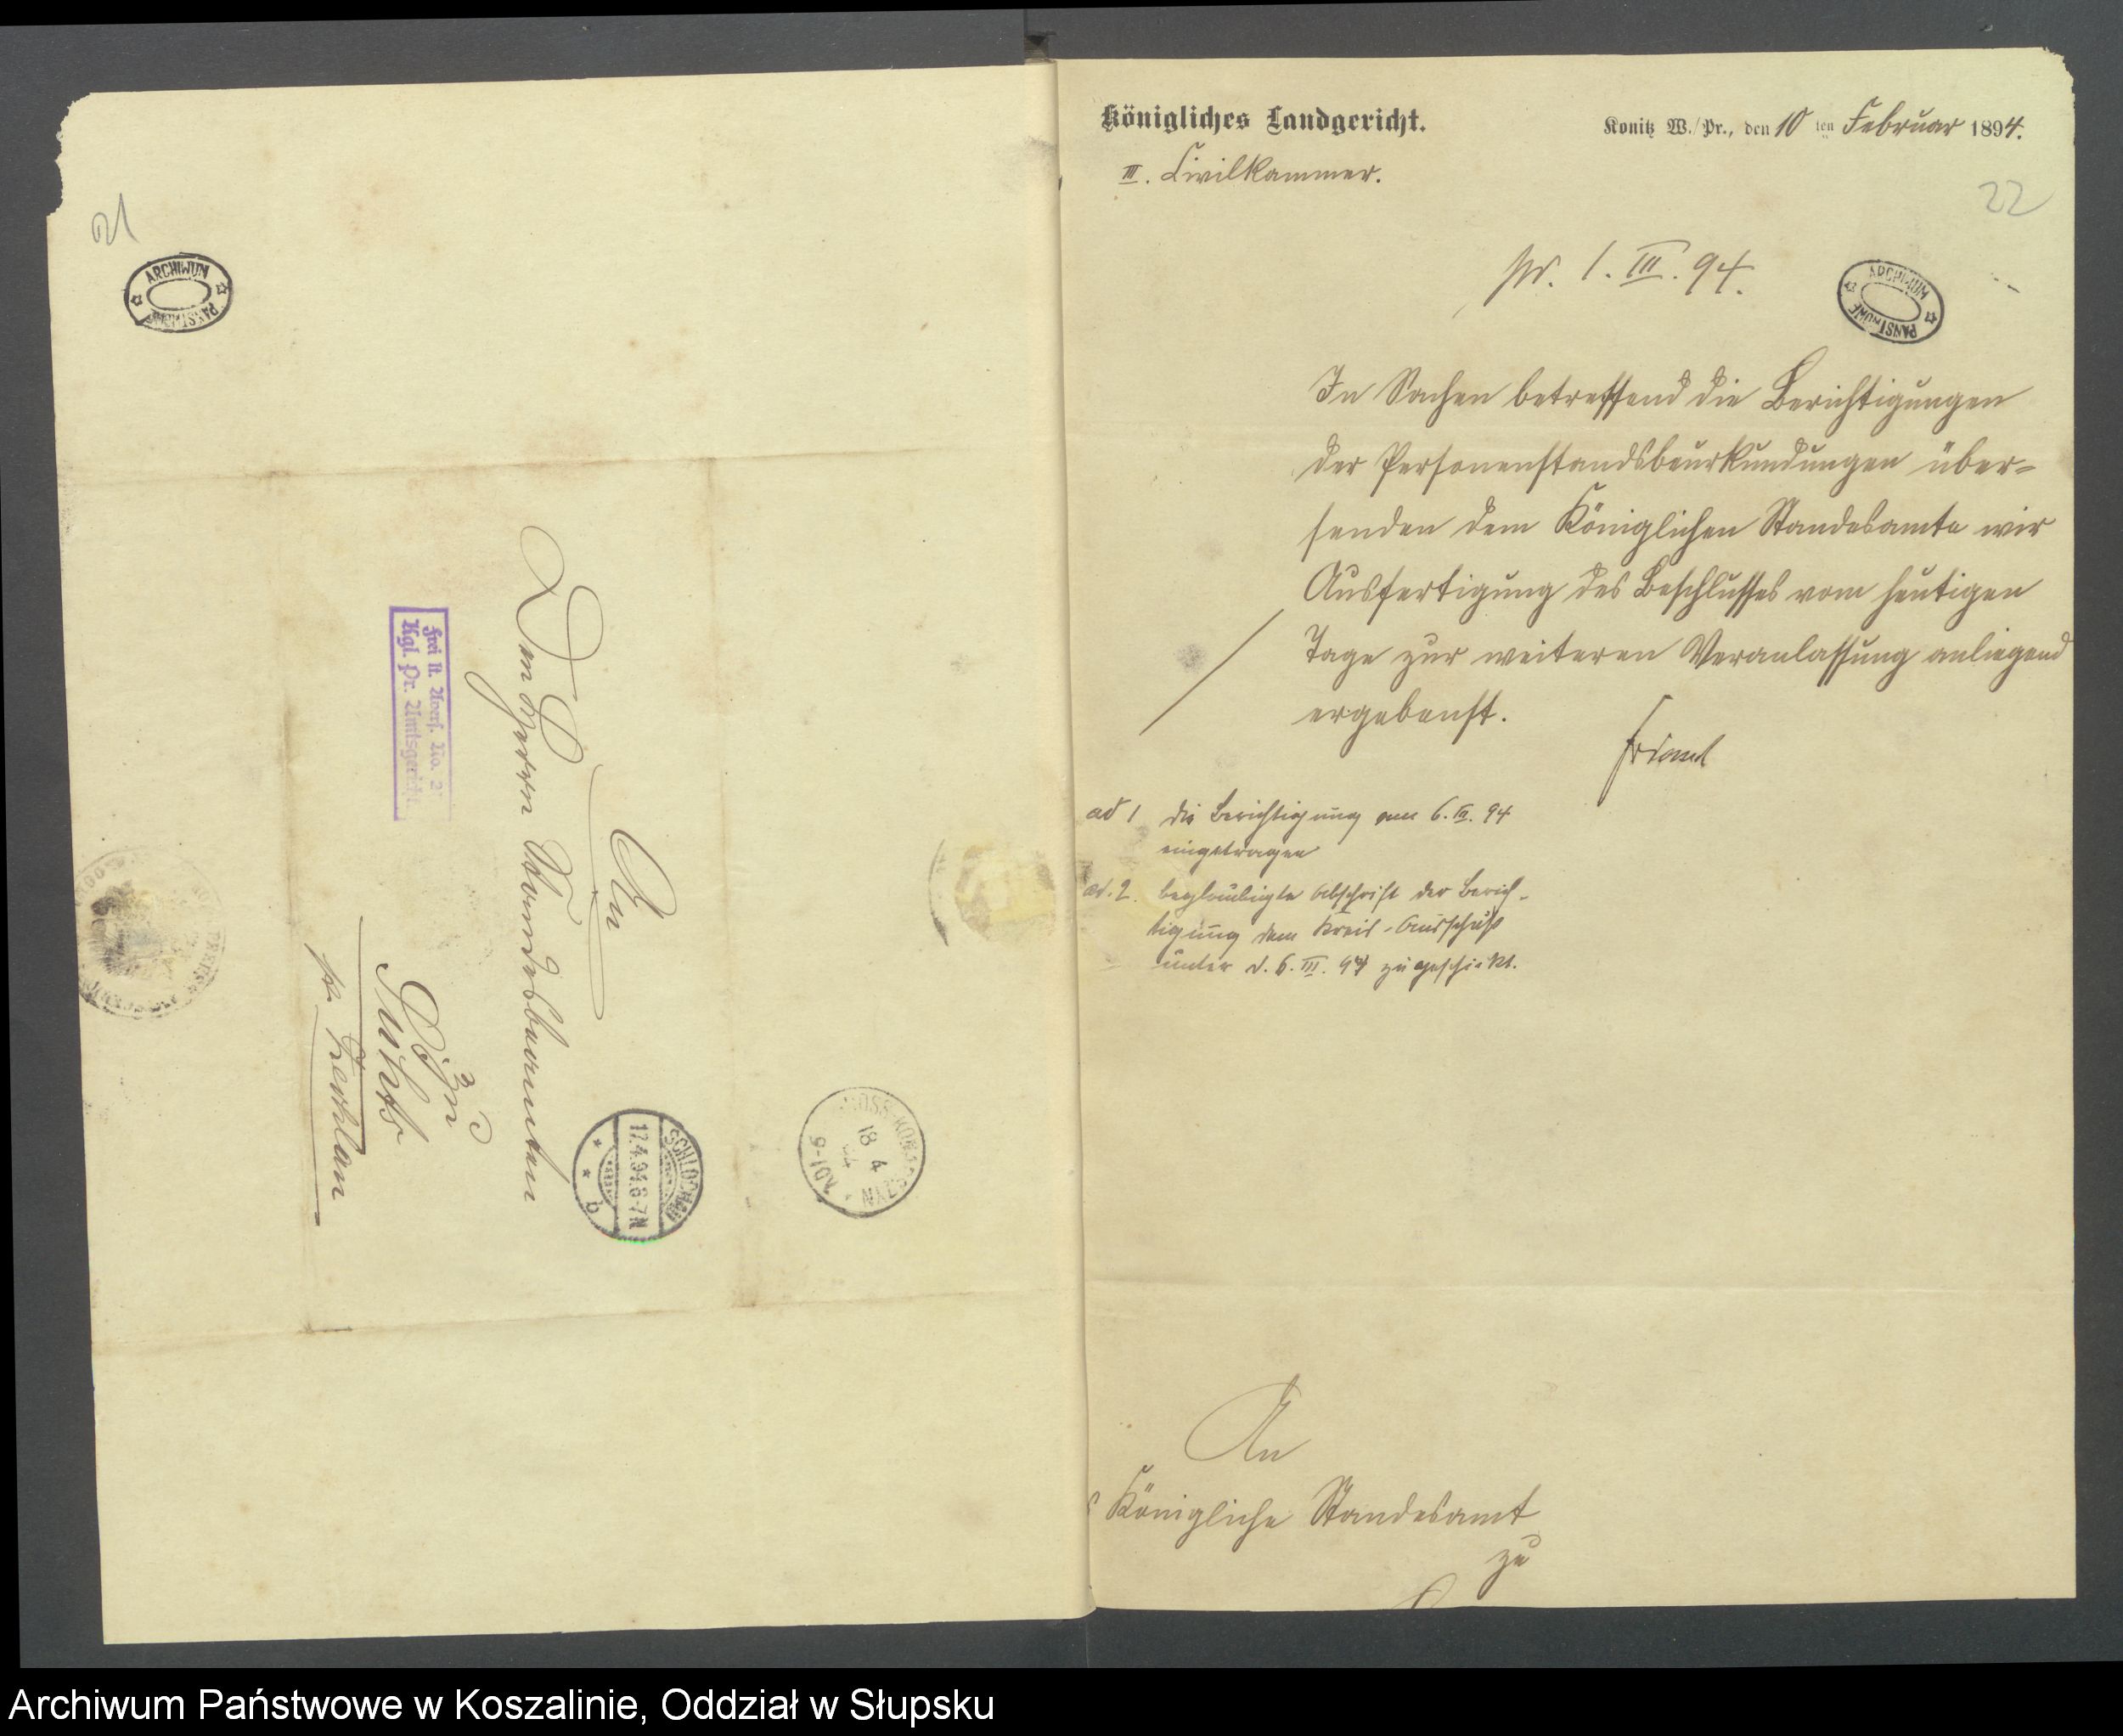 21
ARCHIWUM PAŃSTWOWE
An
Den Herrn Standesbeamten
zu
Frei lt. Avers. No. 21
Kgl. Pr. Amtsgericht.
SCHLOCHAU
17.4.94.6-7N
18 4
94
9-10V
Königliches Landgericht.
III. Civilkammer.
Konitz W./Pr., den 10 ten Februar 1894.
22
pr. 1. III. 94.
ARCHIWUM PAŃSTWOWE
In Sachen betreffend die Berichtigungen
der Personenstandsbeurkundungen über=
senden dem Königlichen Standesamte wir
Ausfertigung des Beschlusses vom heutigen
Tage zur weiteren Veranlassung anliegend
ergebenst.
ad 1 die Berichtigung am 6. III. 94
eingetragen
ad. 2. beglaubigte Abschrift der Berich-
tigung dem Kreis-Ausschuß
unter d. 6. III. 94 zugeschickt.
An
Königliche Standesamt
zu
Archiwum Państwowe w Koszalinie, Oddział w Słupsku